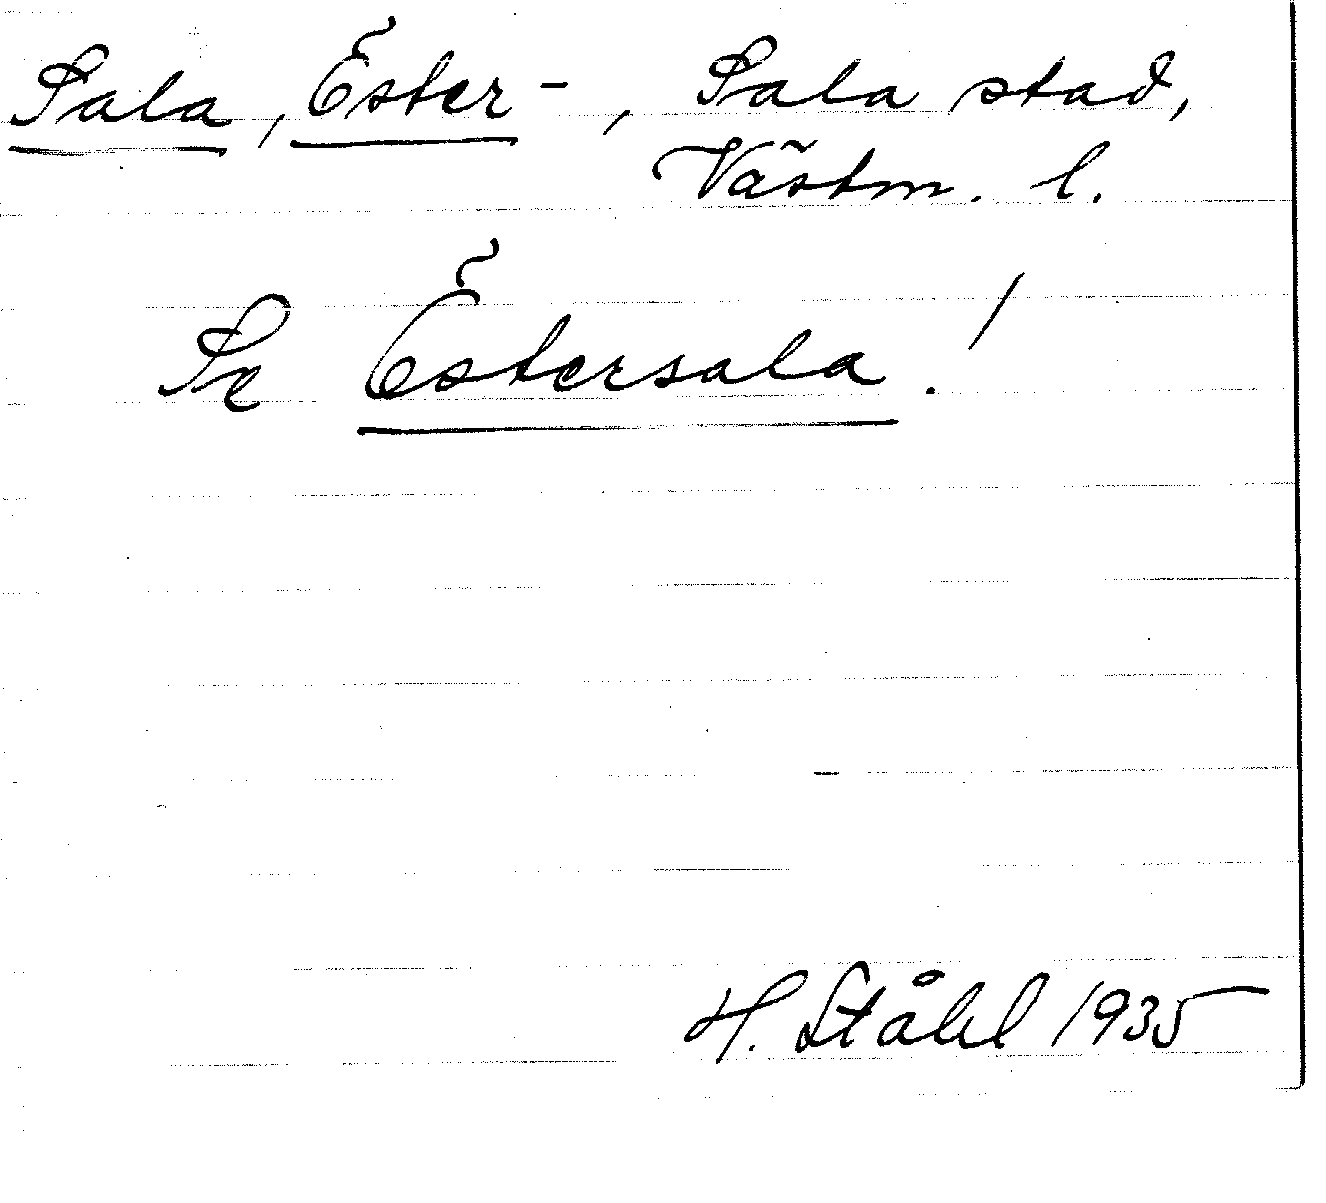 Sala, Öster-, Sala stad,
Västm. l.
Se Östersala!
H. Ståhl 1935